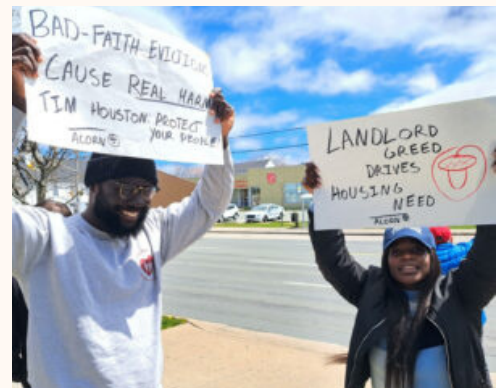 BAD-FAITH EVICTIONS
CAUSE REAL HARM
TIM HOUSTON: PROTECT
YOUR PEOPLE
ACORN
LANDLORD
GREED
DRIVES
HOUSING
NEED
ACORN